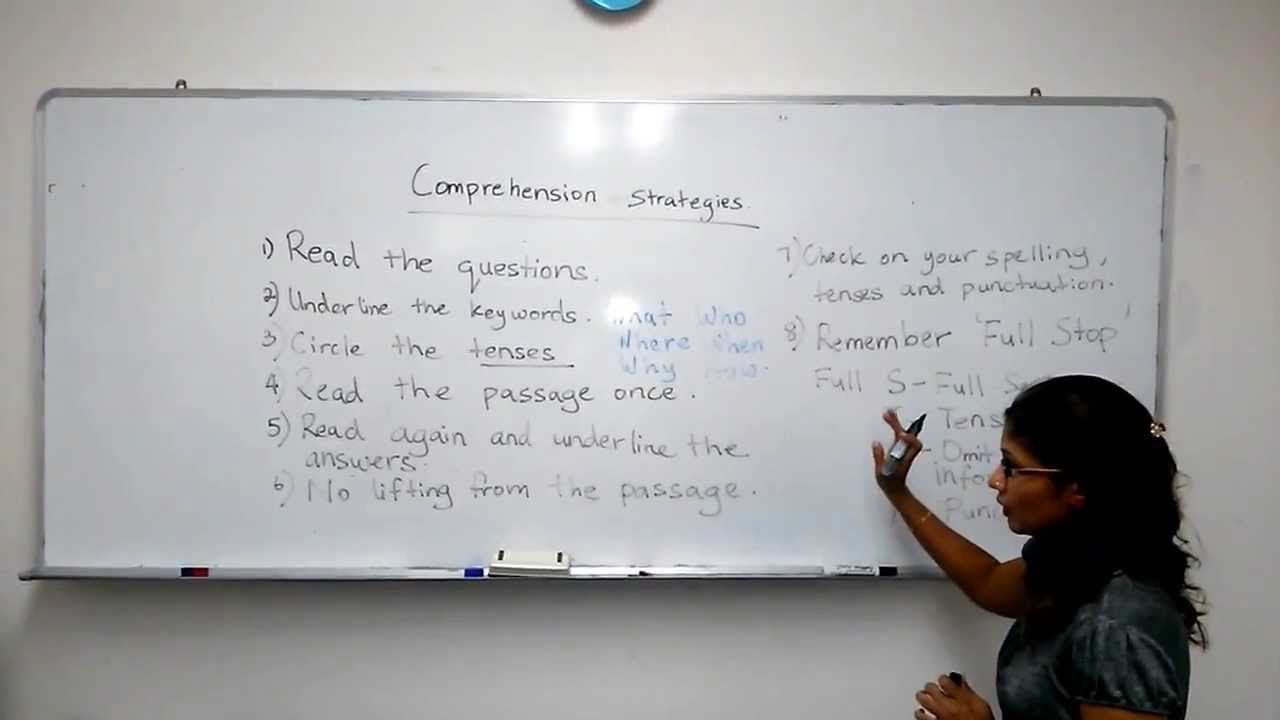 Comprehension Strategies
1) Read the questions.
2) Underline the keywords. What Who
3) Circle the tenses Where When
Why How.
4) Read the passage once.
5) Read again and underline the
answers.
6) No lifting from the passage.
7) Check on your spelling,
tenses and punctuation.
8) Remember 'Full Stop'
Full S - Full
Tens
- Omit
info
Punc